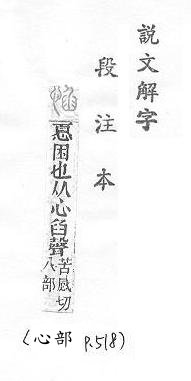 說文解字
段注本
𢝊困也从心臽聲
苦感切
八部
(心部 P.518)